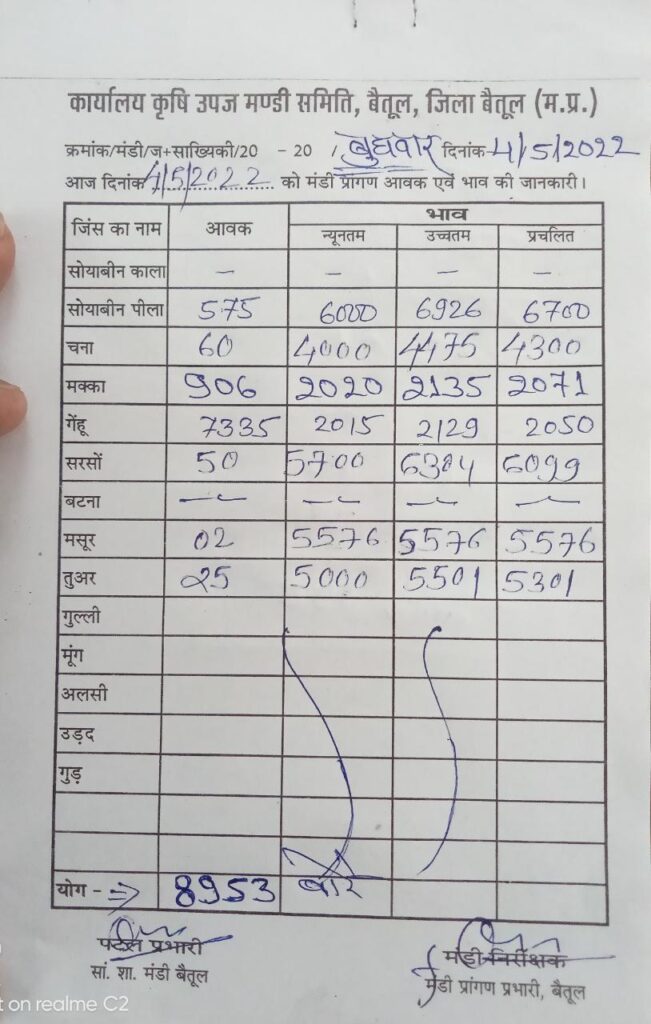 कार्यालय कृषि उपज मण्डी समिति, बैतूल, जिला बैतूल (म.प्र.)
क्रमांक/मंडी/ज+साख्यिकी/20 - 20 / बुधवार दिनांक 4/5/2022
आज दिनांक 4/5/2022 को मंडी प्रांगण आवक एवं भाव की जानकारी।
जिंस का नाम आवक भाव
न्यूनतम उच्चतम प्रचलित
सोयाबीन काला - - - -
सोयाबीन पीला 575 6000 6926 6700
चना 60 4000 4475 4300
मक्का 906 2020 2135 2071
गेंहू 7335 2015 2129 2050
सरसों 50 5700 6304 6099
बटना - - - -
मसूर 02 5576 5576 5576
तुअर 25 5000 5501 5301
गुल्ली
मूंग
अलसी
उड़द
गुड़
योग - ⇒ 8953 बोरे
पटेल प्रभारी
सां. शा. मंडी बैतूल
मंडी निरीक्षक
मंडी प्रांगण प्रभारी, बैतूल
t on realme C2